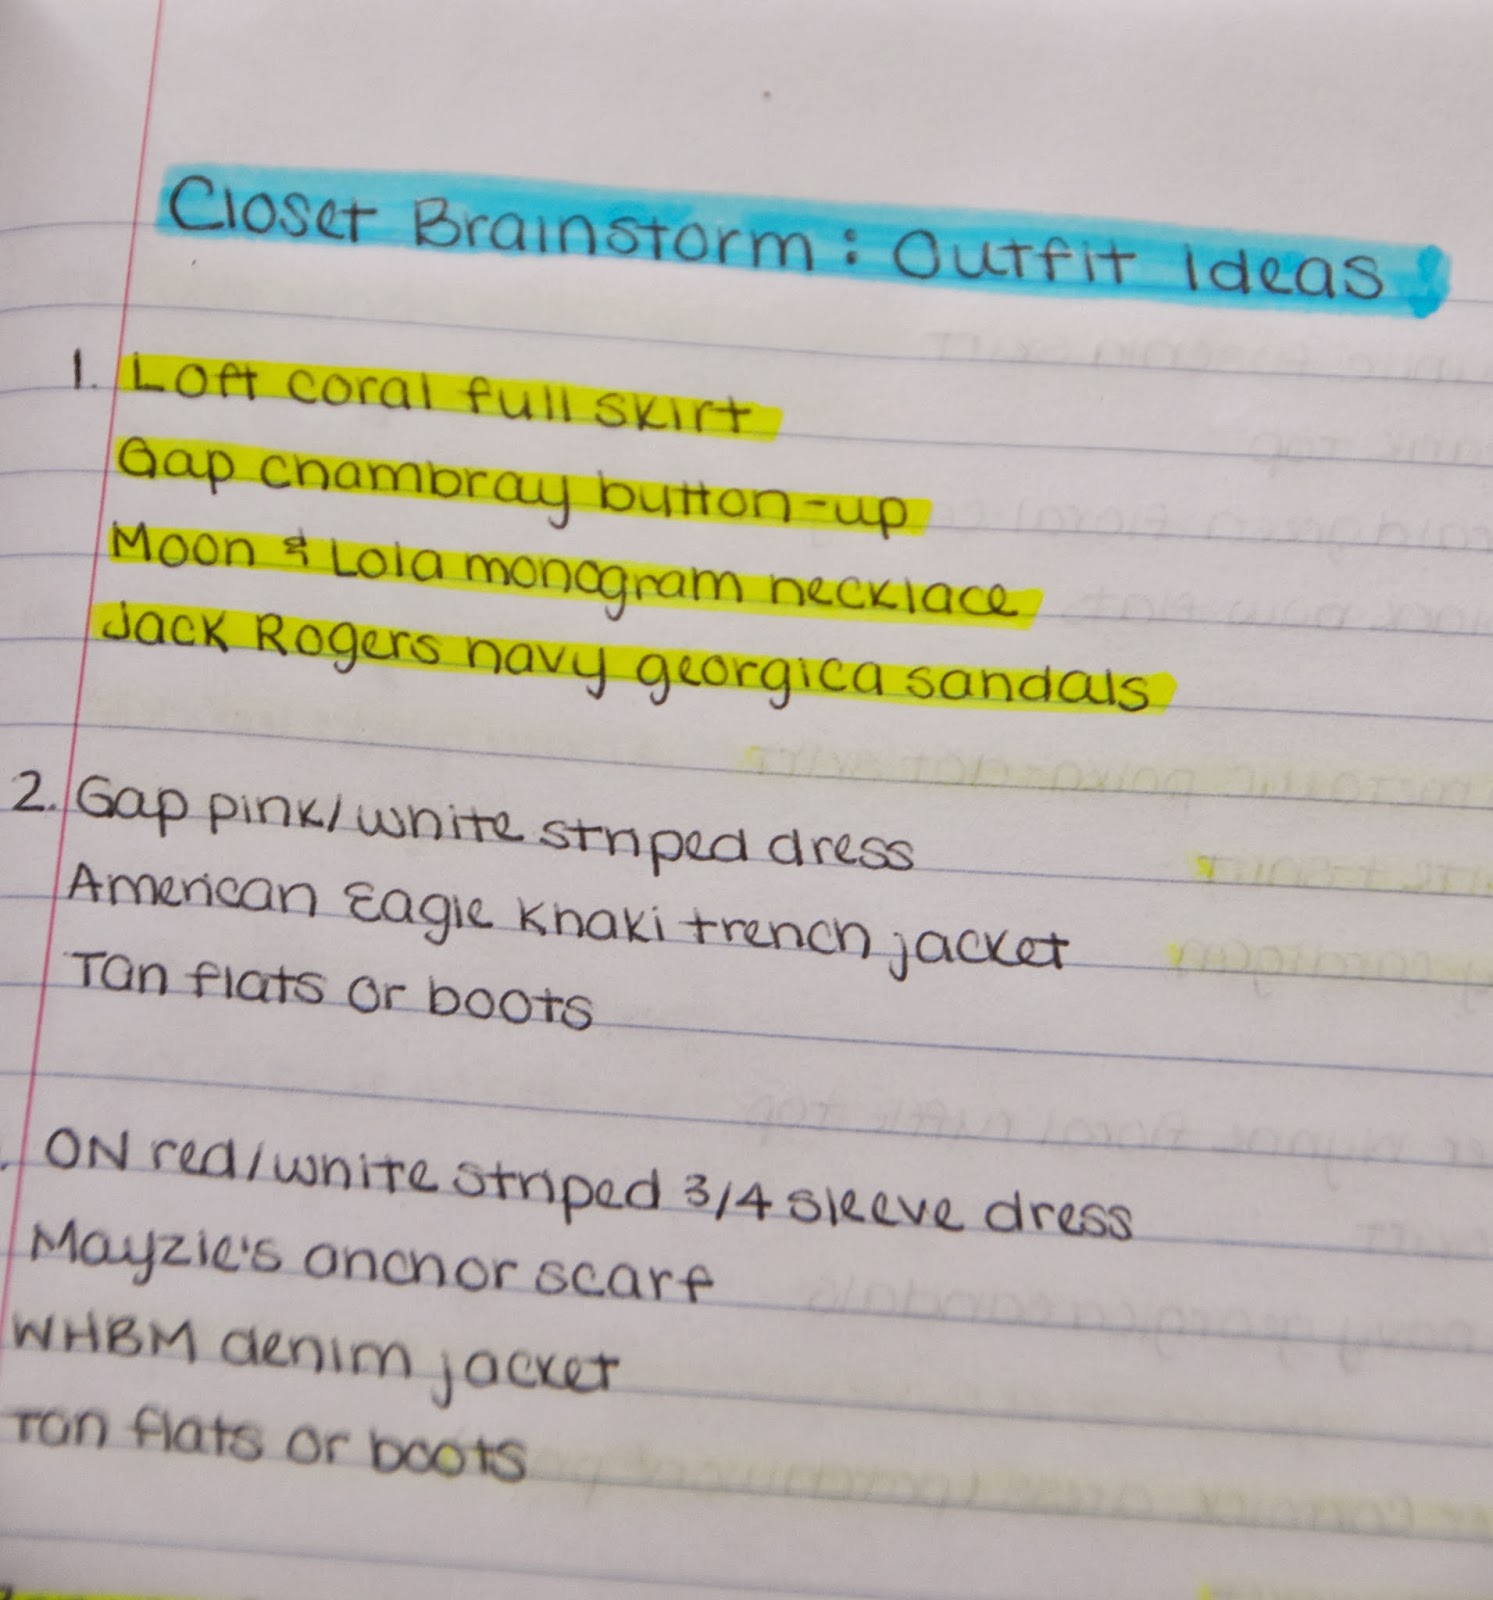 Closet Brainstorm: Outfit Ideas
1. Loft coral full skirt
Gap chambray button-up
Moon & Lola monogram necklace
Jack Rogers navy georgica sandals
2. Gap pink/white striped dress
American Eagle khaki trench jacket
Tan flats or boots
. ON red/white striped 3/4 sleeve dress
Mayzie's anchor scarf
WHBM denim jacket
Tan flats or boots